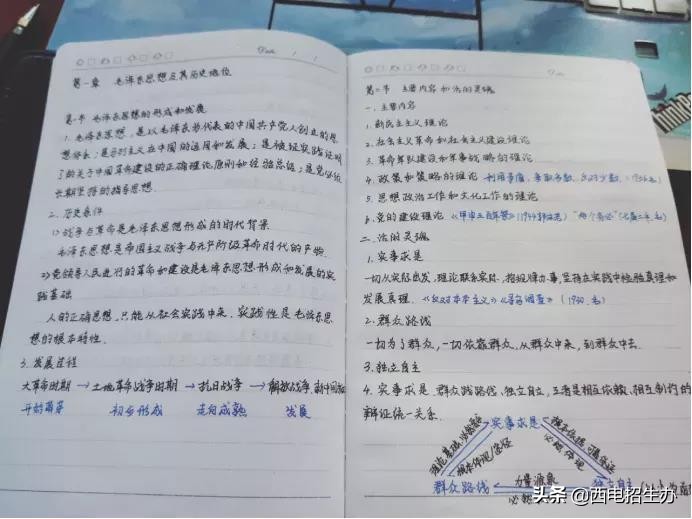 Date / /
第一章 毛泽东思想及其历史地位
第一节 毛泽东思想的形成和发展
1. 毛泽东思想，是以毛泽东为代表的中国共产党人创立的思
想体系；是马列主义在中国的运用和发展；是被实践证明
了的关于中国革命建设的正确理论原则和经验总结；是党必须
长期坚持的指导思想.
二. 历史条件
1) 战争与革命是毛泽东思想形成的时代背景
毛泽东思想是帝国主义战争与无产阶级革命时代的产物.
2) 党领导人民进行的革命和建设是毛泽东思想形成和发展的实
践基础
人的正确思想，只能从社会实践中来. 实践性是毛泽东思
想的根本特性.
3. 发展过程
大革命时期 → 土地革命战争时期 → 抗日战争 → 解放战争、新中国
开始萌芽 初步形成 走向成熟 发展
第二节 主要内容和活的灵魂
一. 主要内容
1. 新民主主义理论
2. 社会主义革命和社会主义建设理论
3. 革命军队建设和军事战略的理论
4. 政策和策略的理论 利用矛盾，争取多数，反对少数
5. 思想政治工作和文化工作的理论
6. 党的建设理论 《甲申三百年祭》 "两个务必"
二. 活的灵魂
1. 实事求是
一切从实际出发，理论联系实际，按规律办事，坚持在实践中检验真理和
发展真理. 《反对本本主义》 (1930. 毛)
2. 群众路线
一切为了群众，一切依靠群众，从群众中来，到群众中去.
3. 独立自主
4. 实事求是、群众路线、独立自立，三者是相互依赖、相互制约的
辩证统一关系.
实事求是
根本体现/途径
必然体现
力量源泉
群众路线
独立自主
头条 @西电招生办